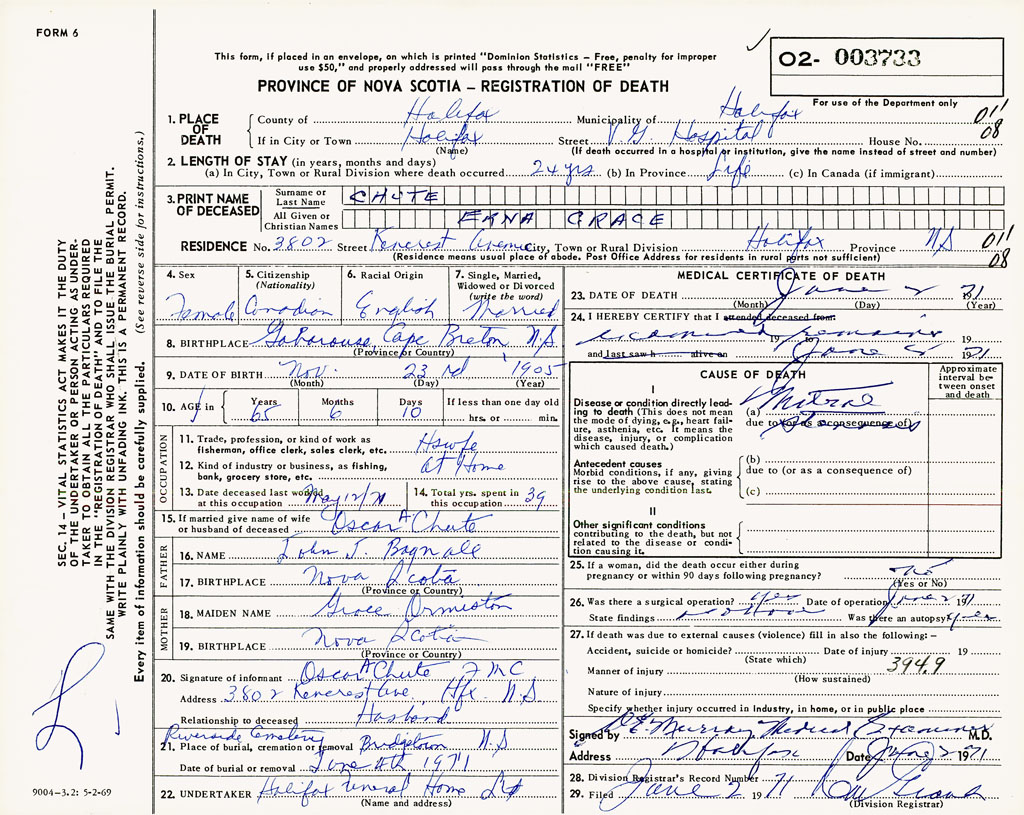 FORM 6
This form, if placed in an envelope, on which is printed "Dominion Statistics – Free, penalty for improper
use $50," and properly addressed will pass through the mail "FREE"
O2- 003733
PROVINCE OF NOVA SCOTIA – REGISTRATION OF DEATH
For use of the Department only
1. PLACE OF DEATH
County of Halifax Municipality of Halifax 01'
If in City or Town Halifax Street V.G. Hospital House No. 08
(Name) (If death occurred in a hospital or institution, give the name instead of street and number)
2. LENGTH OF STAY (in years, months and days)
(a) In City, Town or Rural Division where death occurred 24 yrs (b) In Province Life (c) In Canada (if immigrant)
3. PRINT NAME OF DECEASED
Surname or Last Name CHUTE
All Given or Christian Names ERNA GRACE
RESIDENCE No. 3802 Street Kencrest Avenue City, Town or Rural Division Halifax Province NS 01'
(Residence means usual place of abode. Post Office Address for residents in rural parts not sufficient) 08
4. Sex Female
5. Citizenship (Nationality) Canadian
6. Racial Origin English
7. Single, Married, Widowed or Divorced (write the word) Married
8. BIRTHPLACE Gabarouse, Cape Breton N.S.
(Province or Country)
9. DATE OF BIRTH Nov. 23rd 1905
(Month) (Day) (Year)
10. AGE in Years 65 Months 6 Days 10 If less than one day old hrs. or min.
OCCUPATION
11. Trade, profession, or kind of work as fisherman, office clerk, sales clerk, etc. Hswfe
12. Kind of industry or business, as fishing, bank, grocery store, etc. At Home
13. Date deceased last worked at this occupation May 12/71
14. Total yrs. spent in this occupation 39
15. If married give name of wife or husband of deceased Oscar A Chute
FATHER
16. NAME John J. Bagnall
17. BIRTHPLACE Nova Scotia
(Province or Country)
MOTHER
18. MAIDEN NAME Grace Ormiston
19. BIRTHPLACE Nova Scotia
(Province or Country)
20. Signature of informant Oscar A Chute
Address 3802 Kencrest Ave, Hfx. N.S
Relationship to deceased Husband
Riverside Cemetery
21. Place of burial, cremation or removal Bridgetown N.S
Date of burial or removal June 4th 1971
22. UNDERTAKER Halifax Funeral Home Ltd
(Name and address)
MEDICAL CERTIFICATE OF DEATH
23. DATE OF DEATH June 2 1971
(Month) (Day) (Year)
24. I HEREBY CERTIFY that I attended deceased from:
examined remains 19
and last saw h alive on June 1971
CAUSE OF DEATH
Approximate interval between onset and death
I
Disease or condition directly leading to death (This does not mean the mode of dying, e.g., heart failure, asthenia, etc. It means the disease, injury, or complication which caused death.)
(a) Mitral
due to (or as a consequence of)
stenosis
Antecedent causes
Morbid conditions, if any, giving rise to the above cause, stating the underlying condition last.
(b)
due to (or as a consequence of)
(c)
II
Other significant conditions contributing to the death, but not related to the disease or condition causing it.
25. If a woman, did the death occur either during pregnancy or within 90 days following pregnancy? No
(Yes or No)
26. Was there a surgical operation? yes Date of operation June 2 1971
State findings as above Was there an autopsy? yes
27. If death was due to external causes (violence) fill in also the following: –
Accident, suicide or homicide? Date of injury 19
(State which)
Manner of injury 394.9
(How sustained)
Nature of injury
Specify whether injury occurred in industry, in home, or in public place
Signed by R.E. Murray Medical Examiner M.D.
Address Halifax Date June 2 1971
28. Division Registrar's Record Number
29. Filed June 2 1971
(Division Registrar)
SEC. 14 – VITAL STATISTICS ACT MAKES IT THE DUTY
OF THE UNDERTAKER OR PERSON ACTING AS UNDERTAKER TO OBTAIN ALL THE PARTICULARS REQUIRED
IN THE "REGISTRATION OF DEATH" AND TO FILE THE
SAME WITH THE DIVISION REGISTRAR WHO SHALL ISSUE THE BURIAL PERMIT.
WRITE PLAINLY WITH UNFADING INK. THIS IS A PERMANENT RECORD.
Every item of information should be carefully supplied. (See reverse side for instructions.)
9004–3.2: 5-2-69